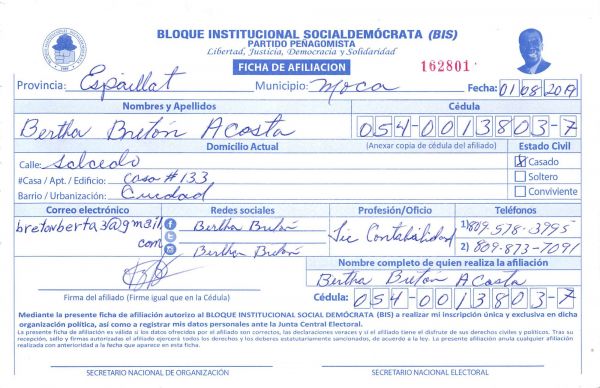 BLOQUE INSTITUCIONAL SOCIALDEMÓCRATA (BIS)
PARTIDO PEÑAGOMISTA
Libertad, Justicia, Democracia y Solidaridad
FICHA DE AFILIACION
162801
Provincia: Espaillat Municipio: Moca Fecha: 01 08 2019
Nombres y Apellidos Cédula
Bertha Bretón Acosta 054-0013803-7
Domicilio Actual (Anexar copia de cédula del afiliado) Estado Civil
Calle: Salcedo X Casado
#Casa / Apt. / Edificio: casa # 133 Soltero
Barrio / Urbanización: Ciudad Conviviente
Correo electrónico Redes sociales Profesión/Oficio Teléfonos
bretonberta3@gmail. Bertha Bretón Lic Contabilidad 1) 809-578-3795
com Bertha Bretón 2) 809-873-7091
Nombre completo de quien realiza la afiliación
Bertha Bretón Acosta
Firma del afiliado (Firme igual que en la Cédula) Cédula: 054-0013803-7
Mediante la presente ficha de afiliación autorizo al BLOQUE INSTITUCIONAL SOCIAL DEMÓCRATA (BIS) a realizar mi inscripción única y exclusiva en dicha
organización política, así como a registrar mis datos personales ante la Junta Central Electoral.
La presente ficha de afiliación es válida si los datos ofrecidos por el afiliado son correctos, las declaraciones veraces y si el afiliado tiene el disfrute de sus derechos civiles y políticos. Tras su
recepción, sello y firmas autorizadas el afiliado ejercerá todos los derechos y los deberes estatutariamente sancionados, de acuerdo a la ley. La presente afiliación anula cualquier afiliación
realizada con anterioridad a la fecha que aparece en esta ficha.
SECRETARIO NACIONAL DE ORGANIZACIÓN SECRETARIO NACIONAL ELECTORAL